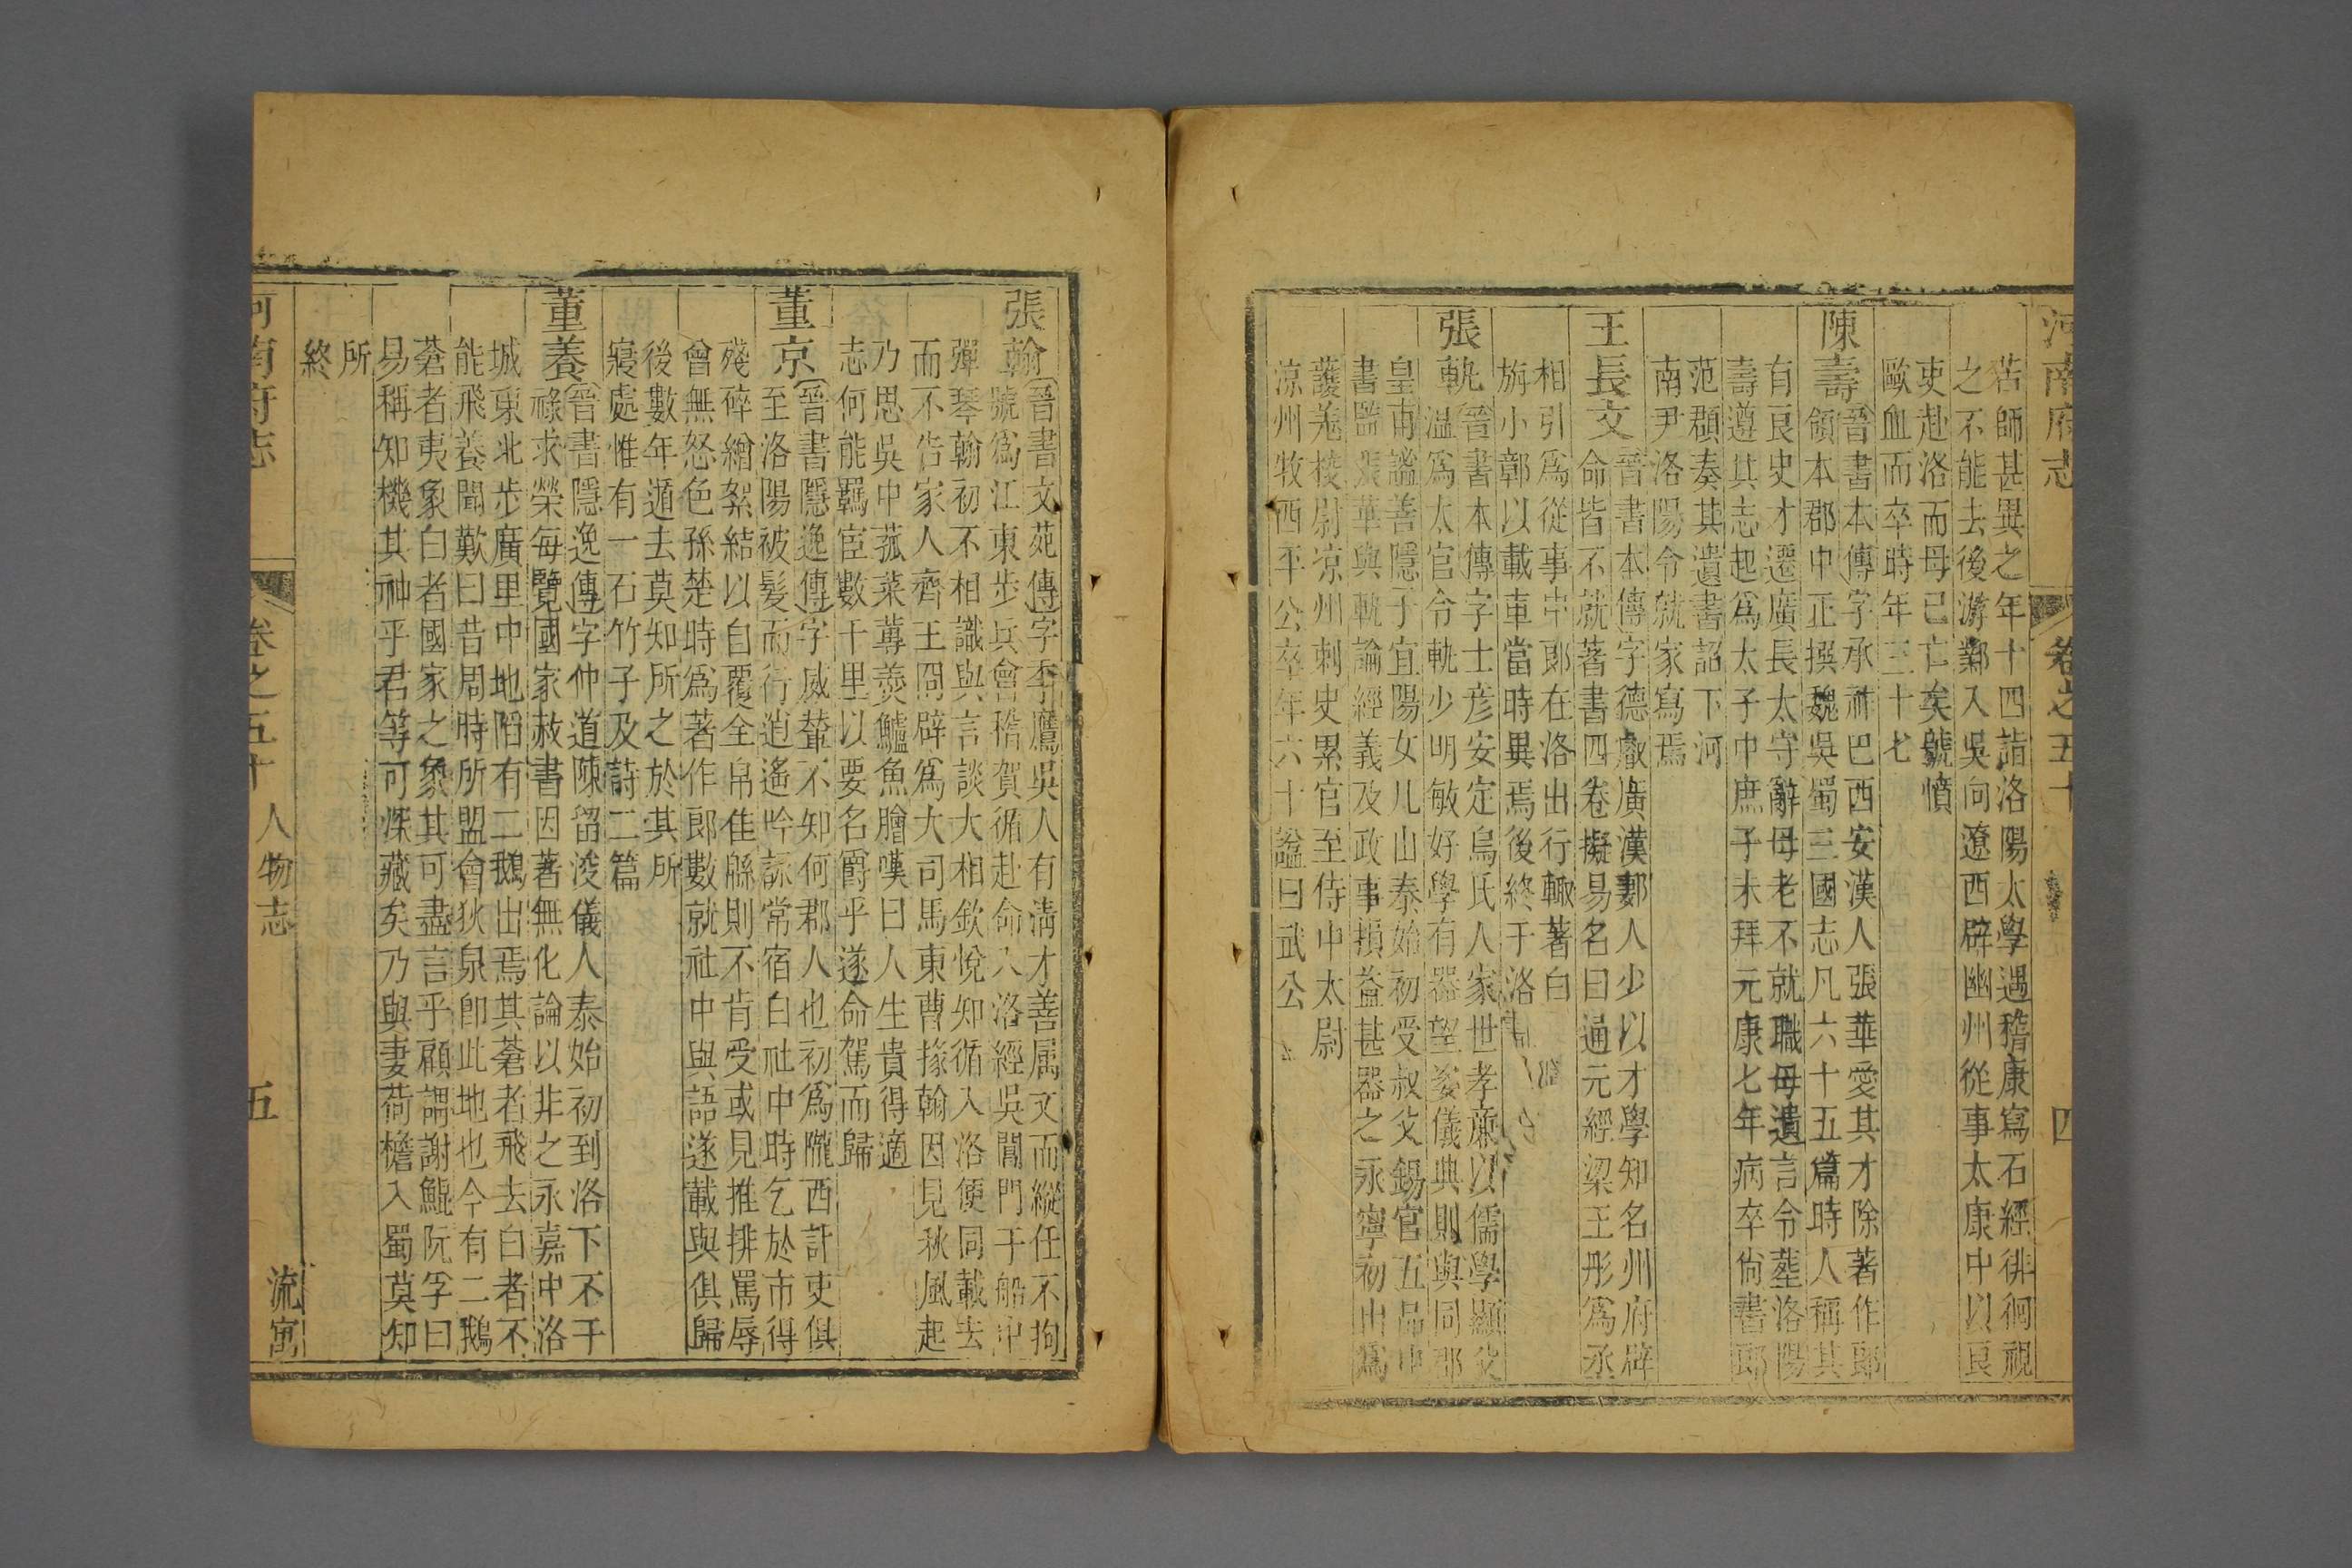 河南府志 卷之五十 四
苦師甚異之年十四詣洛陽太學遇嵇康寫石經徘徊視
之不能去後游鄴入吳向遼西辟幽州從事太康中以良
吏赴洛而母已亡矣號憤
歐血而卒時年三十七
陳壽
晉書本傳字承祚巴西安漢人張華愛其才除著作郎
領本郡中正撰魏吳蜀三國志凡六十五篇時人稱其
有良史才遷廣長太守辭母老不就職母遺言令葬洛陽
壽遵其志起為太子中庶子未拜元康七年病卒尙書郎
范頵奏其遺書詔下河
南尹洛陽令就家寫焉
王長文
晉書本傳字德叡廣漢郪人少以才學知名州府辟
命皆不就著書四卷擬易名曰通元經梁王肜為丞
相引為從事中郎在洛出行輒著白
旃小鄣以載車當時異焉後終于洛
張軌
晉書本傳字士彥安定烏氏人家世孝廉以儒學顯父
溫為太官令軌少明敏好學有器望姿儀典則與同郡
皇甫謐善隱于宜陽女几山泰始初受叔父錫官五品中
書監張華與軌論經義及政事損益甚器之永寧初出為
護羌校尉涼州刺史累官至侍中太尉
涼州牧西平公卒年六十謚曰武公
張翰
晉書文苑傳字季鷹吳人有淸才善属文而縱任不拘
號為江東步兵會稽賀循赴命入洛經吳閶門于船中
彈琴翰初不相識與言談大相欽悅知循入洛便同載去
而不告家人齊王冏辟為大司馬東曹掾翰因見秋風起
乃思吳中菰菜蓴羹鱸魚膾嘆曰人生貴得適
志何能羈宦數千里以要名爵乎遂命駕而歸
董京
晉書隱逸傳字威輦不知何郡人也初為隴西計吏俱
至洛陽被髮而行逍遙吟詠常宿白社中時乞於市得
殘碎繒絮結以自覆全帛佳緜則不肯受或見推排罵辱
曾無怒色孫楚時為著作郎數就社中與語遂載與俱歸
後數年遁去莫知所之於其所
寢處惟有一石竹子及詩二篇
董養
晉書隱逸傳字仲道陳留浚儀人泰始初到洛下不干
祿求榮每覽國家赦書因著無化論以非之永嘉中洛
城東北步廣里中地陷有二鵝出焉其蒼者飛去白者不
能飛養聞歎曰昔周時所盟會狄泉卽此地也今有二鵝
蒼者夷象白者國家之象其可盡言乎顧謂謝鯤阮孚曰
易稱知機其神乎君等可深藏矣乃與妻荷檐入蜀莫知
所
終
河南府志 卷之五十 人物志 五 流寓